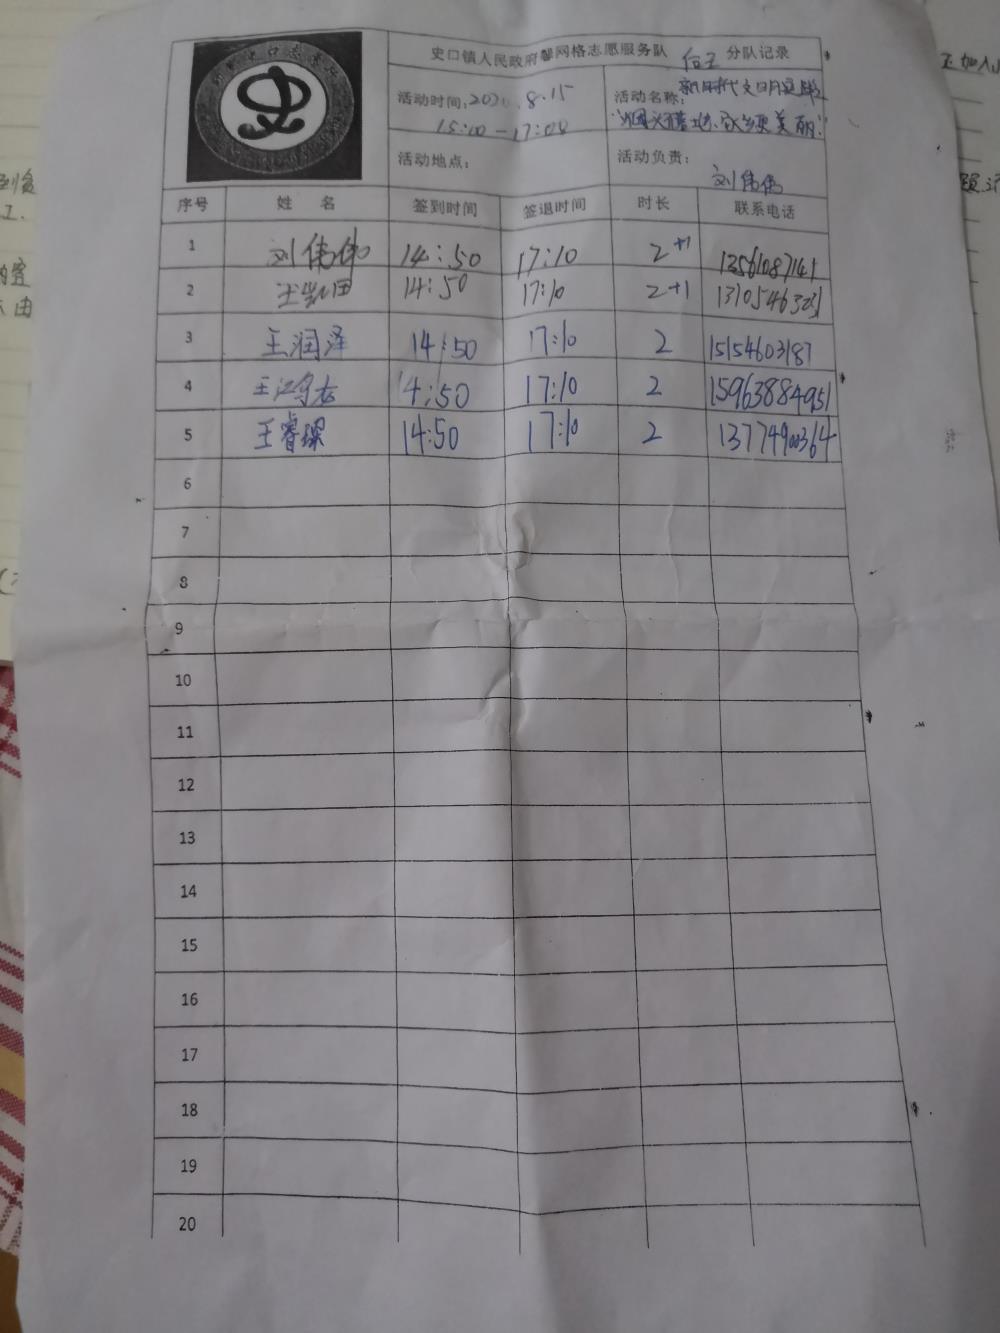 史口镇人民政府馨网格志愿服务队 分队记录
活动时间: 8.15
15:00-17:00
活动名称: 新时代文明实践
家乡更美丽"
活动地点:
活动负责: 刘伟伟
序号 姓名 签到时间 签退时间 时长 联系电话
1 刘伟伟 14:50 17:10 2+1 13561087141
2 14:50 17:10 2+1
3 王润泽 14:50 17:10 2 15154603187
4 14:50 17:10 2 15963884951
5 王睿琛 14:50 17:10 2 13774900364
6
7
8
9
10
11
12
13
14
15
16
17
18
19
20